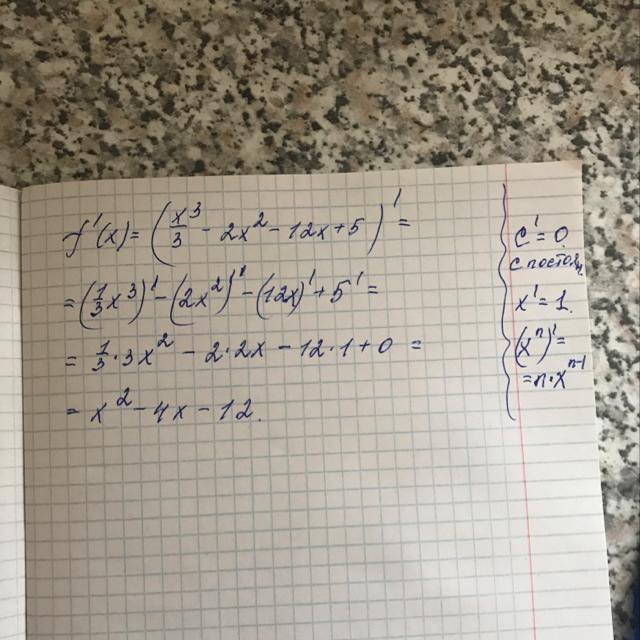 f'(x) = (x³/3 - 2x² - 12x + 5)' =
= (1/3 x³)' - (2x²)' - (12x)' + 5' =
= 1/3 · 3x² - 2·2x - 12·1 + 0 =
= x² - 4x - 12.
c' = 0
c постоян,
x' = 1.
(xⁿ)' =
= n·xⁿ⁻¹